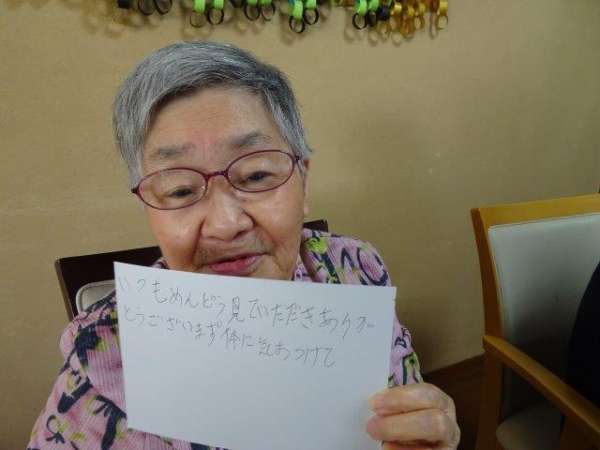 いつもめんどう見ていただきありが
とうございます体に気おつけて